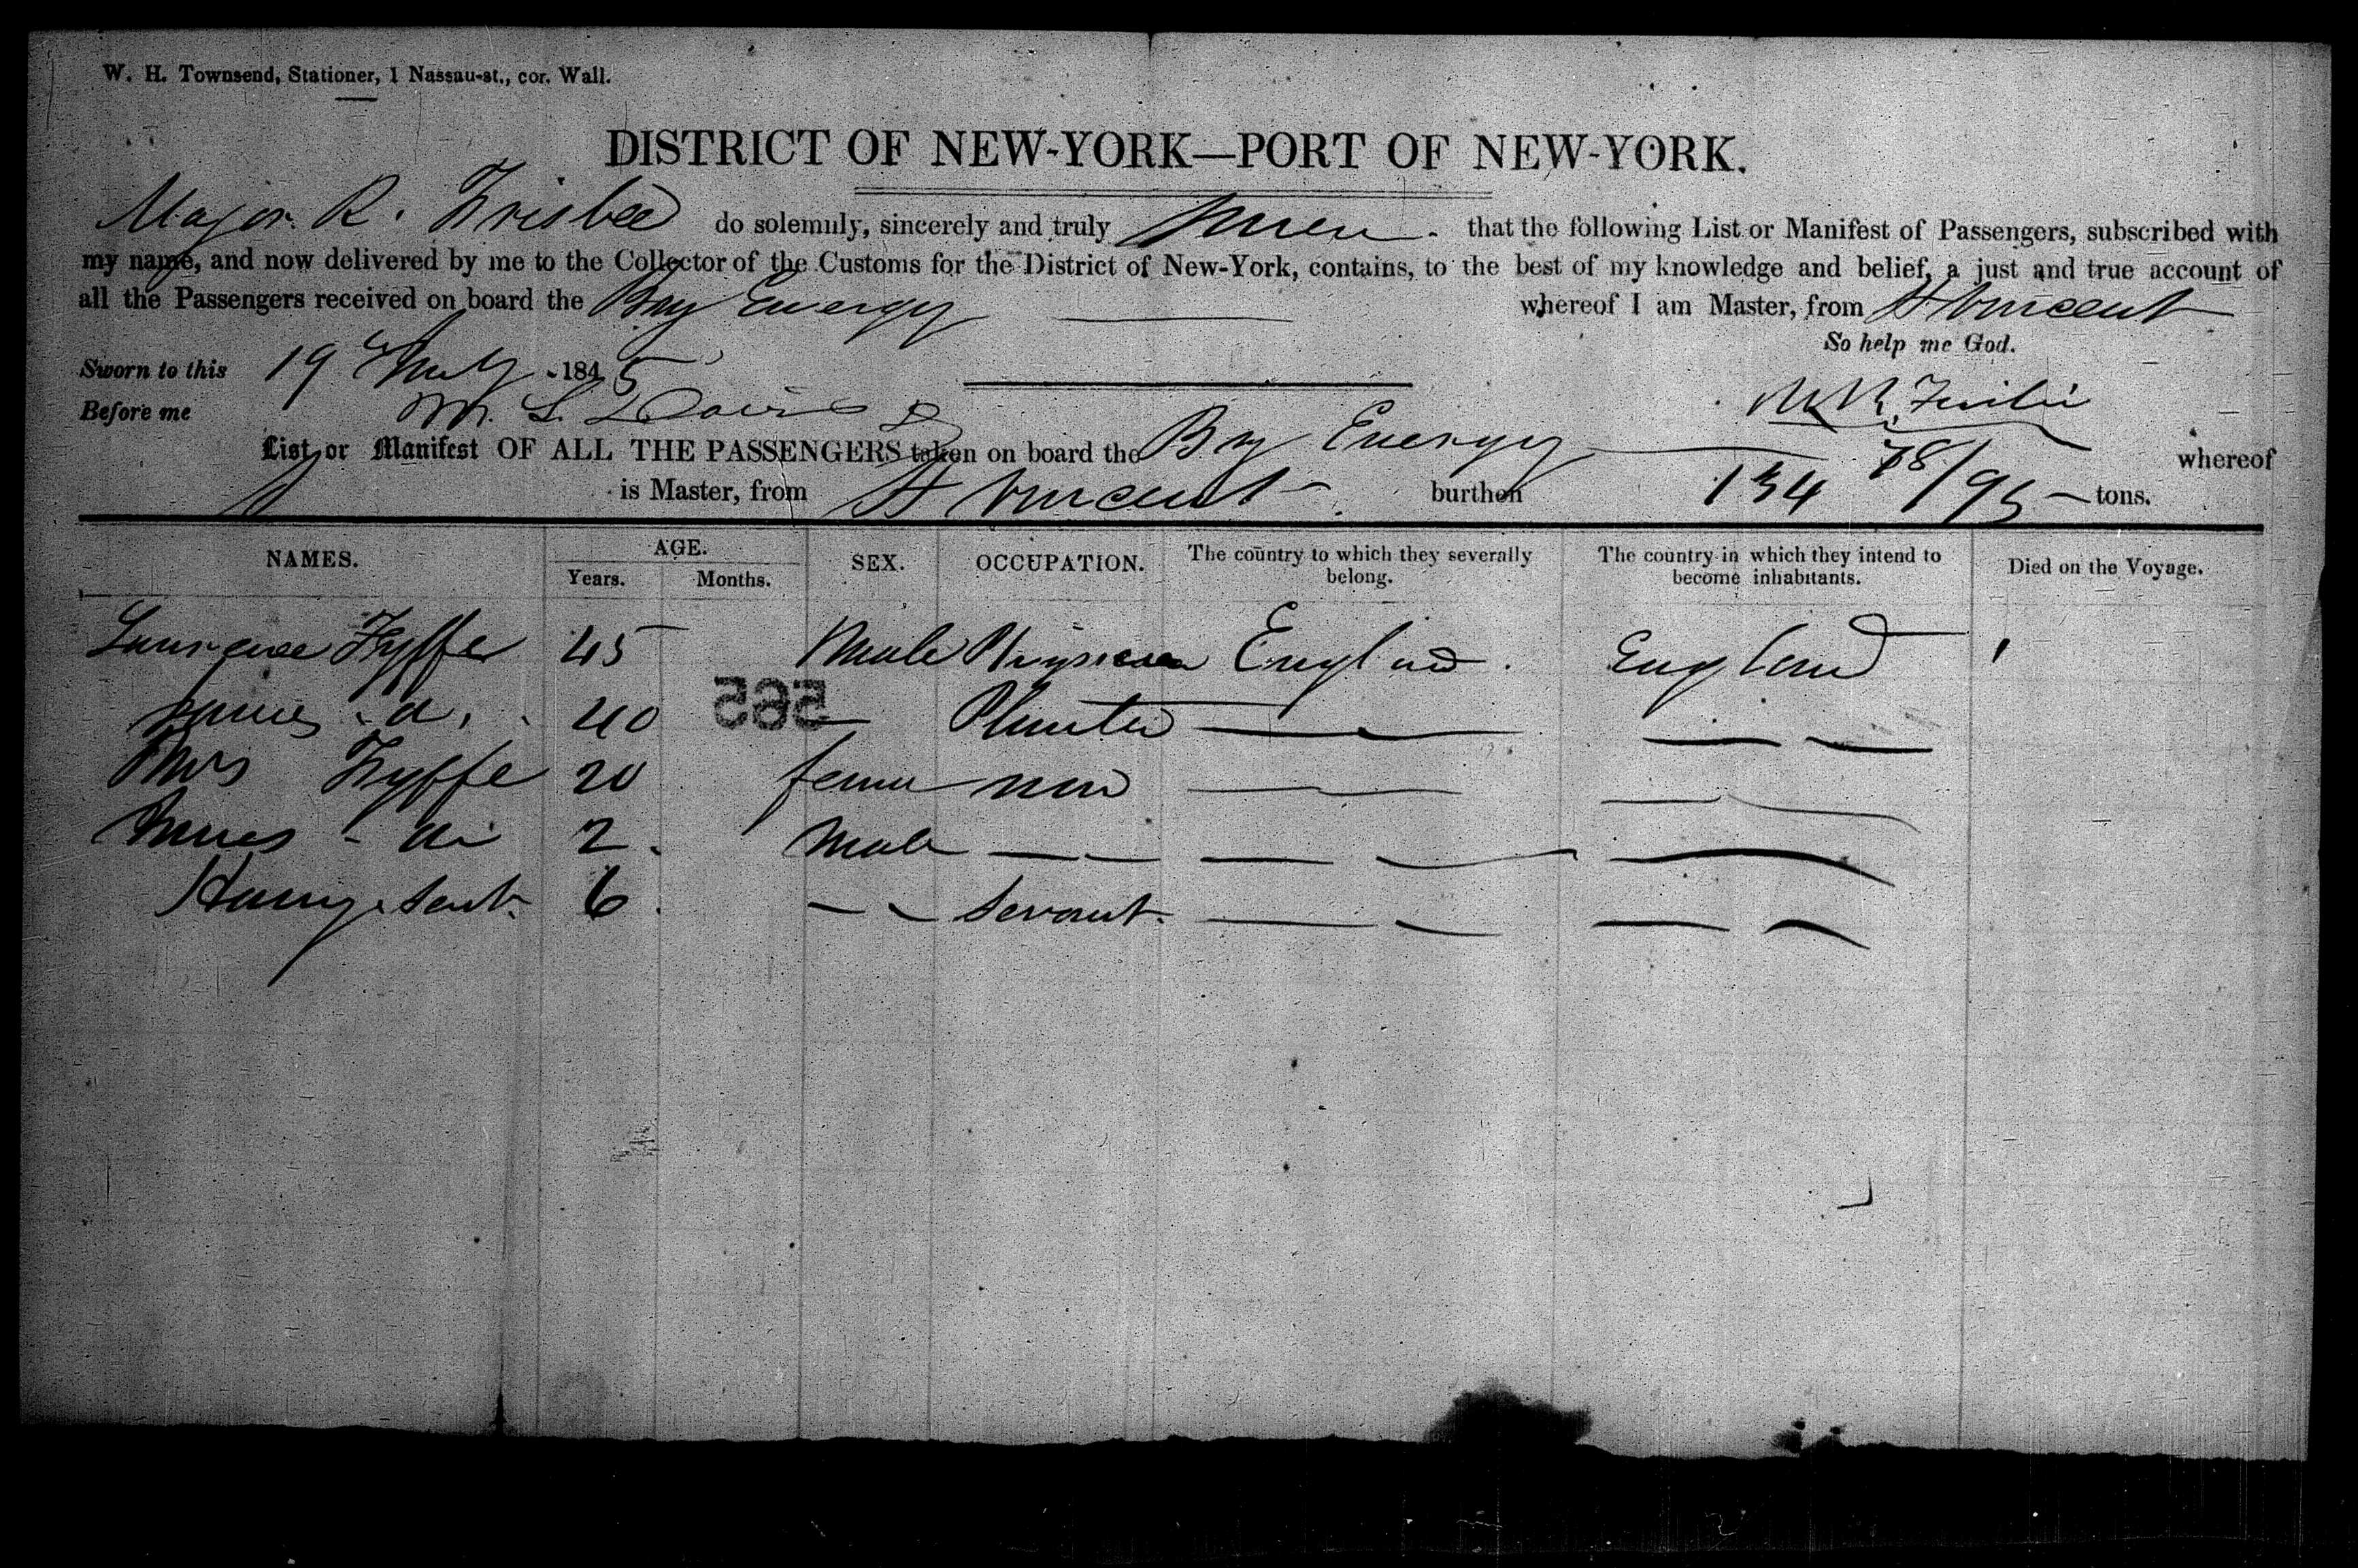 W. H. Townsend, Stationer, 1 Nassau-st., cor. Wall.
DISTRICT OF NEW-YORK—PORT OF NEW-YORK.
Major R. Frisbee do solemnly, sincerely and truly swear that the following List or Manifest of Passengers, subscribed with
my name, and now delivered by me to the Collector of the Customs for the District of New-York, contains, to the best of my knowledge and belief, a just and true account of
all the Passengers received on board the Brig Energy whereof I am Master, from St Vincent
So help me God.
Sworn to this 19 July 1845
Before me M. L. Davis
List or Manifest OF ALL THE PASSENGERS taken on board the Brig Energy whereof
is Master, from St Vincent burthen 134 78/95 tons.
NAMES. AGE. SEX. OCCUPATION. The country to which they severally belong. The country in which they intend to become inhabitants. Died on the Voyage.
Years. Months.
Laurence Fyffe 45 Male Physician England England
James do 40 — Planter — —
Mrs Fyffe 20 — —
do 2 Male — — —
Henry Servt 6 — Servant — —
595